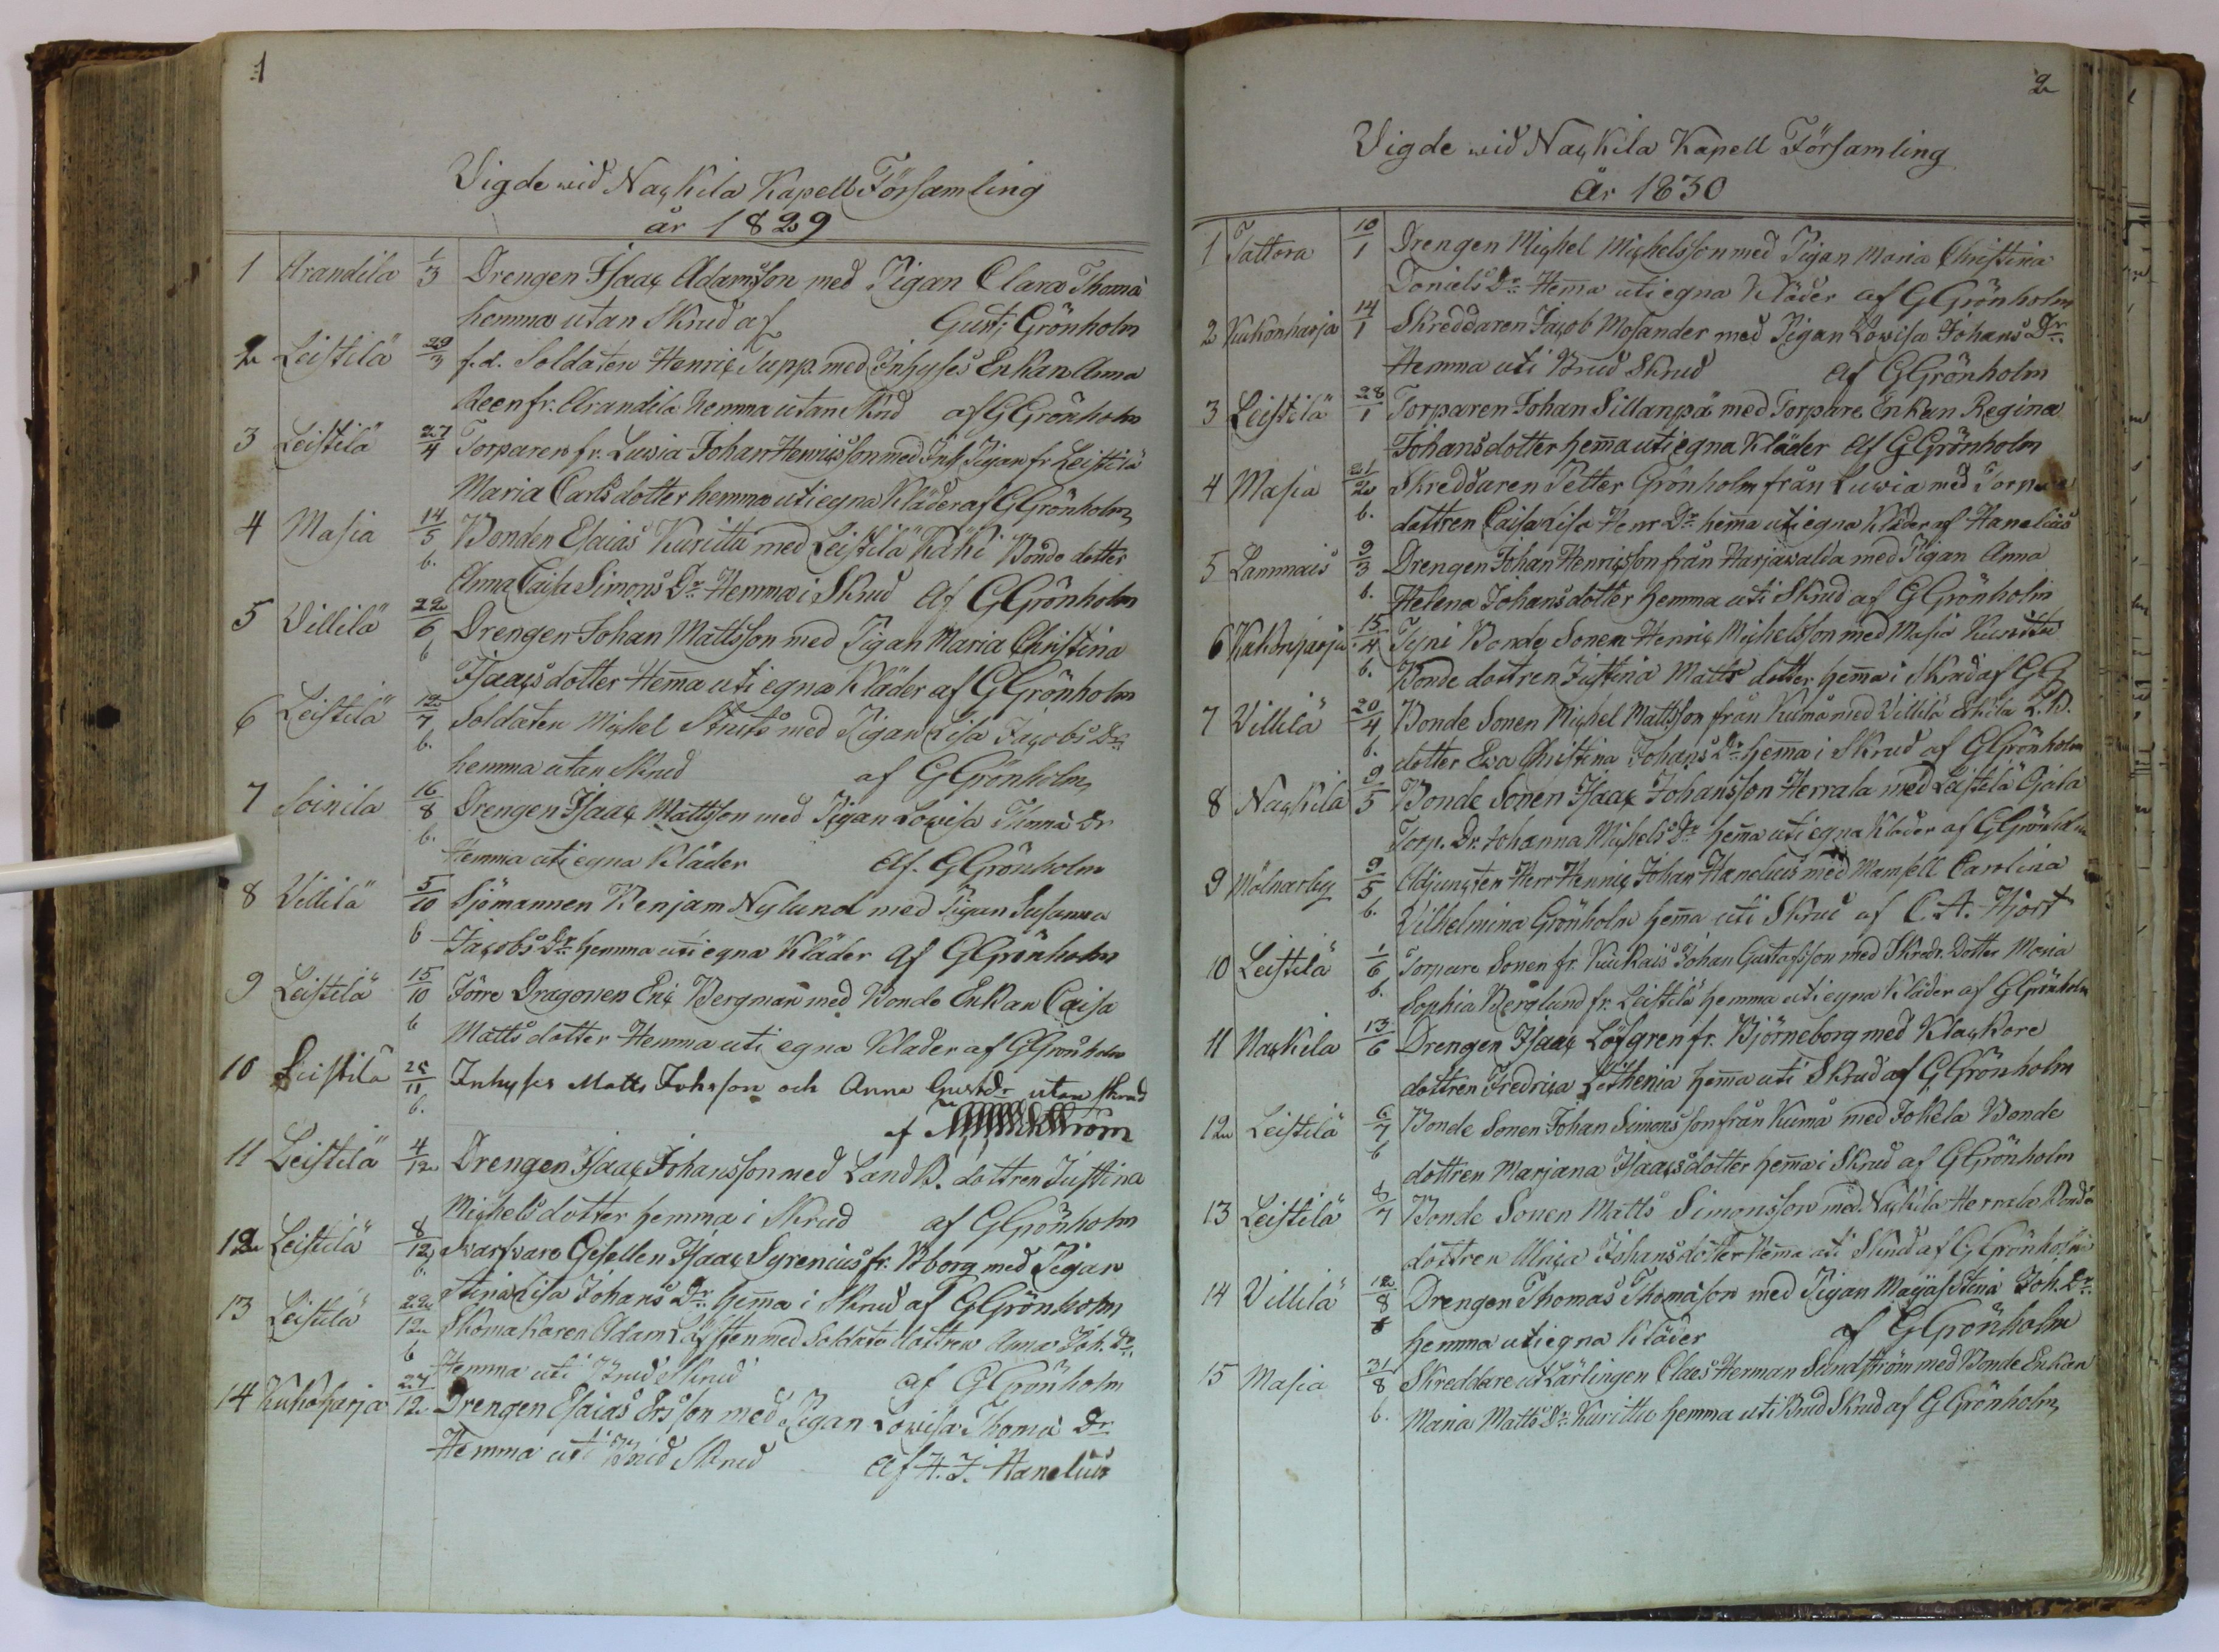 1
Vigde wid Nackila Kapell Församling
år 1829
1 Arandila 1/3 Drengen Isaac Adamsson med Pigan Clara Thoma
hemma utan Skrud af Gust: Grönholm
2 Leistilä 29/3 f.d. Soldaten Henric Tupp med Inhyses Enkan Anna
fr. Arandila hemma utan Skrud af G Grönholm
3 Leistilä 27/4 Torparen fr. Luvia Johan Henricsson med Inh Pigan fr Leistilä
Maria Carlsdotter hemma uti egna Kläder af G Grönholm
4 Masia 14/5 Bonden Esaias Kurittu med Leistilä Käki Bonde dotter
b. Anna Caisa Simons Dr Hemma i Skrud Af G Grönholm
5 Villilä 22/6 Drengen Johan Mattsson med Pigan Maria Christina
b Isaacsdotter Hema uti egna Kläder af G Grönholm
6 Leistilä 12/7 Soldaten Michel Struts med Pigan Lisa Jacobs Dr
b. hemma utan Skrud af G Grönholm
7 Soinila 16/8 Drengen Isaac Mattsson med Pigan Lovisa Thoma Dr
b. Hemma uti egna Kläder Af. G Grönholm
8 Villilä 5/10 Sjömannen Benjam Nylund med Pigan Susanna
b Jacobs Dr hemma uti egna Kläder af G Grönholm
9 Leistilä 15/10 Förre Dragonen Eric Bergman med Bonde Enkan Caisa
b Mattsdotter Hemma uti egna Kläder af G Grönholm
10 Leistilä 25/11 Inhyses Matts Johsson och Anna Gustdr utan skrud
b. af
11 Leistilä 4/12 Drengen Isaac Johansson med Land B. dottren Justina
Michelsdotter hemma i Skrud af G Grönholm
12 Leistilä 8/12 Svarfvare Gesellen Isaac Syrenius fr. Bborg med Pigan
b. Stina Lisa Johans Dr hema i Skrud af G Grönholm
13 Leistilä 22/12 Skomakaren Adam Löfsten med Soldats dottren Anna Joh. Dr
b Hemma uti Brud Skrud af G Grönholm
14 Kukoharja 27/12 Drengen Esaias Ersson med Pigan Lovisa Thoma Dr
Hemma uti Brud Skrud Af H. J. Hanelius
2
Vigde wid Nackila Kapell Församling
År 1830
1 Tattora 10/1 Drengen Michel Michelsson med Pigan Maria Christina
Daniels Dr Hema uti egna Kläder af G Grönholm
2 Kukonharja 14/1 Skreddaren Jacob Mosander med Pigan Lovisa Johans Dr
Hemma uti Brud Skrud af G Grönholm
3 Leistilä 28/1 Torparen Johan Sillanpä med Torpare Enkan Regina
Johansdotter hema uti egna Kläder Af G Grönholm
4 Masia 21/2 Skreddaren Petter Grönholm från Luvia med Torpare
b. dottren Caisa Lisa Henr Dr hema uti egna Kläder af Hanelius
5 Lammais 9/3 Drengen Johan Henricsson från Harjawalda med Pigan Anna
b. Helena Johansdotter hemma uti Skrud af G Grönholm
6 Kukonharja 15/4 Tyni Bonde Sonen Henric Michelsson med Masia Kurittu
b. Bonde dottren Justina Matts dotter hema i Skrud af G G
7 Villilä 20/4 Bonde Sonen Michel Mattsson från Kumå med Villilä Erkilä L.B.
b. dotter Eva Christina Johans Dr hema i Skrud af G Grönholm
8 Nackila 9/5 Bonde Sonen Isaac Johansson Herrala med Leistilä Ojala
Torp. Dr. Johanna Michels Dr hema uti egna Kläder af G Grönholm
9 Mölnarby 9/5 Adjuncten Herr Henric Johan Hanelius med Mamsell Carolina
b. Vilhelmina Grönholm hema uti Skrud af C. A. Hjort
10 Leistilä 1/6 Torpare Sonen fr. Kuckais Johan Gustafsson med Skredr. Dotter Maria
b. Sophia Berglund fr. Leistilä hemma uti egna Kläder af G Grönholm
11 Nackila 13/6 Drengen Isaac Löfgren fr. Björneborg med Klackare
dottren Fredrica Lerthenia hema uti Skrud af G Grönholm
12 Leistilä 6/7 Bonde Sonen Johan Simonsson från Kumå med Jokela Bonde
b dottren Marjana Isaacsdotter hema i Skrud af G Grönholm
13 Leistilä 8/7 Bonde Sonen Matts Simonsson med Nackila Herrala Bonde
dottren Ulrica Johansdotter Hema uti Skrud af G Grönholm
14 Villilä 12/8 Drengen Thomas Thomasson med Pigan Majastina Joh. Dr
b hemma uti egna Kläder af G Grönholm
15 Masia 31/8 Skreddare Lärlingen Claes Herman Sundström med Bonde Enkan
b. Maria Matts Dr Kurittu hemma uti Brud Skrud af G Grönholm